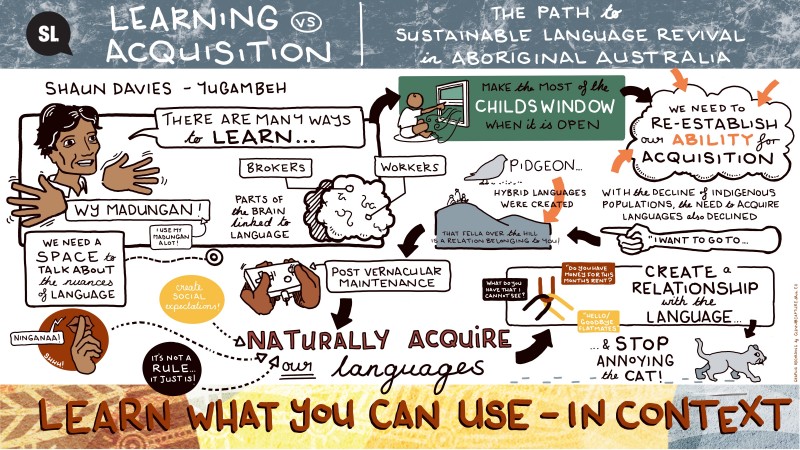 SL
LEARNING VS
ACQUISITION
THE PATH to
SUSTAINABLE LANGUAGE REVIVAL
in ABORIGINAL AUSTRALIA
SHAUN DAVIES - YUGAMBEH
THERE ARE MANY WAYS
to LEARN...
WY MADUNGAN!
I USE MY
MADUNGAN
ALOT!
BROKERS
WORKERS
PARTS OF
the BRAIN
linked to
LANGUAGE
MAKE the MOST of the
CHILDS WINDOW
WHEN it is OPEN
WE NEED TO
RE-ESTABLISH
our ABILITY for
ACQUISITION
WITH the DECLINE of INDIGENOUS
POPULATIONS, the NEED to ACQUIRE
LANGUAGES also DECLINED
PIDGEON...
HYBRID LANGUAGES
WERE CREATED
THAT FELLA OVER the HILL
IS A RELATION BELONGING to YOU!
"I WANT TO GO TO...
WE NEED A
SPACE to
TALK ABOUT
the nuances
of LANGUAGE
NINGANAA!
SHHH!
create
SOCIAL
expectations!
IT'S NOT A
RULE...
IT JUST IS!
POST VERNACULAR
MAINTENANCE
NATURALLY ACQUIRE
our languages
WHAT DO YOU
HAVE THAT I
CANNOT SEE?
"DO YOU HAVE
MONEY FOR THIS
MONTHS RENT?"
"HELLO/
GOODBYE
FLATMATES"
CREATE a
RELATIONSHIP
with the
LANGUAGE...
... & STOP
ANNOYING
the CAT!
LEARN WHAT YOU CAN USE - IN CONTEXT